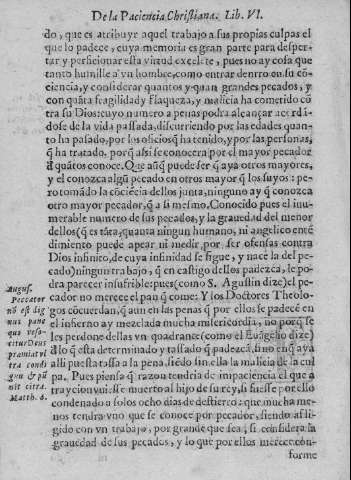 De la Paciencia Christiana. Lib. VI.
do, que es atribuyr aquel trabajo a sus propias culpas el
que lo padece, cuya memoria es gran parte para desper-
tar y perficionar esta virtud excelēte, pues no ay cosa que
tanto humille a vn hombre, como entrar dentro en su cō-
ciencia, y considerar quantos y quan grandes pecados, y
con quāta fragilidad y flaqueza, y malicia ha cometido cō
tra su Dios: cuyo numero a penas podra alcançar acordā-
dose de la vida passada, discurriendo por las edades quan-
to ha pasado, por los oficios q̄ ha tenido, y por las personas
q̄ ha tratado, porq̄ assi se conocera por el mayor pecador
d̄ quātos conoce. Que aūq̄ puede ser q̄ aya otros mayores,
y el conozca algū pecado en otros mayor q̄ los suyos: pe-
ro tomādo la cōciēcia dellos junta, ninguno ay q̄ conozca
otro mayor pecador, q̄ a si mesmo. Conocido pues el inu-
merable numero de sus pecados, y la grauedad del menor
dellos (q̄ es tāta, quanta ningun humano, ni angelico entē
dimiento puede apear ni medir, por ser ofensas contra
Dios infinito, de cuya infinidad se sigue, y nace la del pe-
cado) ningun trabajo, q̄ en castigo dellos padezca, le po-
dra parecer insufrible: pues (como S. Agustin dize) el pe-
cador no merece el pan q̄ come: Y los Doctores Theolo-
gos cōcuerdan, q̄ aun en las penas q̄ por ellos se padecē en
el infierno ay mezclada mucha misericordia, no porq̄ se
les perdone dellas vn quadrante (como el Euāgelio dize)
d̄ lo q̄ esta determinado y tassado q̄ padezcā, sino en q̄ aya
alli puesta tassa a la pena, siēdo sin ella la malicia de la cul
pa. Pues piensa q̄ razon tendria de impaciencia el que a
trayciō vuiesse muerto al hijo de su rey, si fuesse por ello
condenado a solos ocho dias de destierro: que mucha me-
nos tendra vno que se conoce por pecador, siendo afli-
gido con vn trabajo, por grande que sea, si considera la
grauedad de sus pecados, y lo que por ellos merece con-
forme
Augus.
Peccator
nō est dig
nus pane
quo vesc-
citur Deus
præmiat vl
tra condi
gnū & pu
nit citra.
Matth. 6.